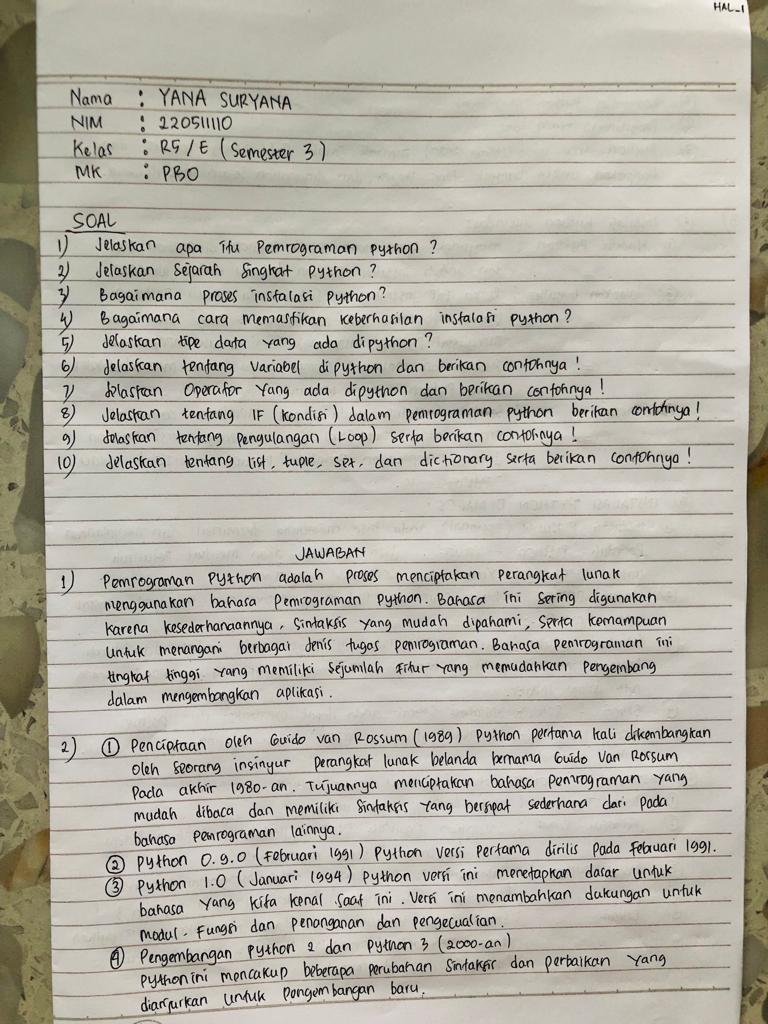 HAL_1
Nama : YANA SURYANA
NIM : 220511110
Kelas : R5/E (Semester 3)
MK : PBO
SOAL
1) Jelaskan apa itu Pemrograman python ?
2) Jelaskan Sejarah Singkat Python ?
3) Bagaimana proses instalasi Python?
4) Bagaimana cara memastikan keberhasilan instalasi python ?
5) Jelaskan tipe data yang ada dipython ?
6) Jelaskan tentang Variabel dipython dan berikan contohnya !
7) Jelaskan Operator Yang ada dipython dan berikan contohnya !
8) Jelaskan tentang IF (kondisi) dalam pemrograman python berikan contohnya !
9) Jelaskan tentang pengulangan (Loop) serta berikan contohnya !
10) Jelaskan tentang list, tuple, set, dan dictionary serta berikan contohnya !
JAWABAN
1) Pemrograman Python adalah proses menciptakan perangkat lunak
menggunakan bahasa Pemrograman Python. Bahasa ini sering digunakan
karena kesederhanaannya, Sintaksis yang mudah dipahami, serta kemampuan
untuk menangani berbagai jenis tugas pemrograman. Bahasa pemrograman ini
tingkat tinggi yang memiliki Sejumlah Fitur yang memudahkan Pengembang
dalam mengembangkan aplikasi.
2) ① Penciptaan oleh Guido van Rossum (1989) Python pertama kali dikembangkan
oleh seorang insinyur perangkat lunak belanda bernama Guido Van Rossum
Pada akhir 1980-an. Tujuannya menciptakan bahasa pemrograman yang
mudah dibaca dan memiliki Sintaksis yang bersipat sederhana dari pada
bahasa pemrograman lainnya.
② Python 0.9.0 (Februari 1991) Python versi Pertama dirilis Pada Februari 1991.
③ Python 1.0 (Januari 1994) Python versi ini menetapkan dasar untuk
bahasa yang kita kenal saat ini. Versi ini menambahkan dukungan untuk
modul, Fungsi dan penanganan dan pengecualian.
④ Pengembangan Python 2 dan Python 3 (2000-an)
Python ini mencakup beberapa perubahan Sintaksis dan perbaikan yang
dianjurkan untuk Pengembangan baru.